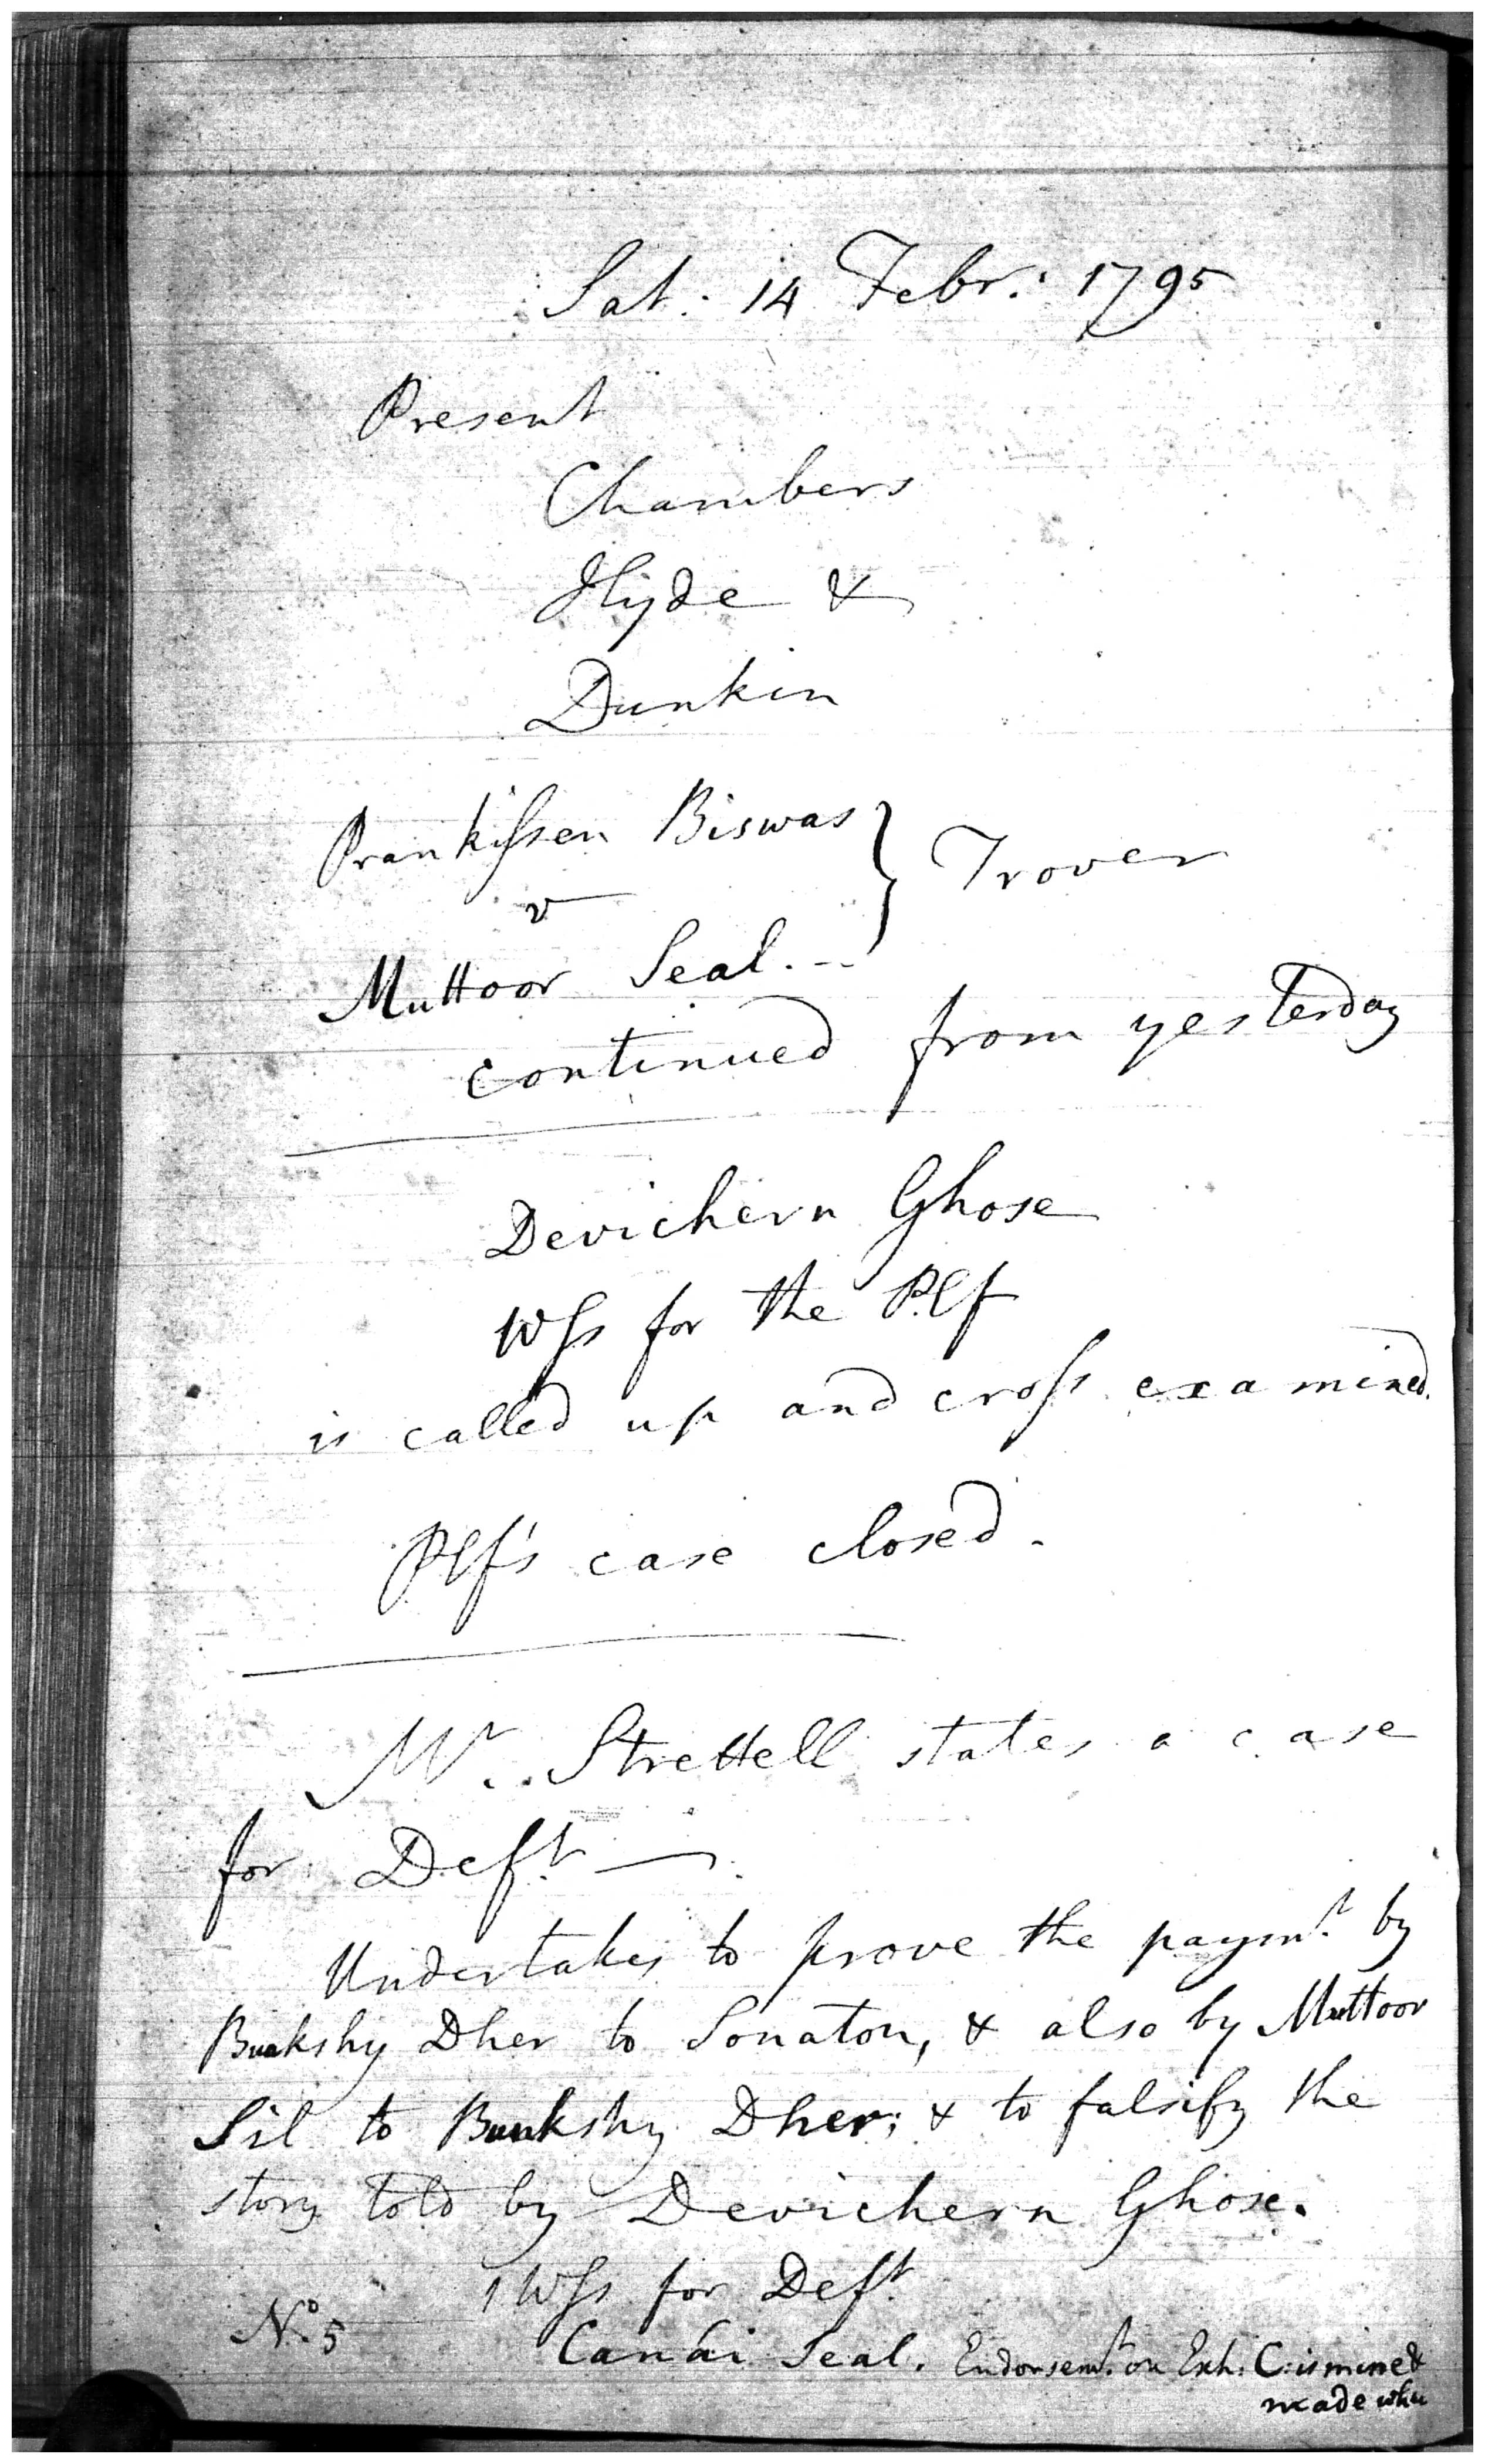 Sat. 14 Febr: 1795
Present
Chambers
Hyde &
Dunkin
Prankissen Biswas } Trover
v
Muttoor Seal. --
continued from yesterday
Devichern Ghose
Wss for the Plf
is called up and cross examined.
Plf's case closed.
Mr. Strettell states a case
for Deft. —
Undertakes to prove the paymt. by
Buukshy Dher to Sonaton, & also by Muttoor
Sil to Buukshy Dher; & to falsify the
story told by Devichern Ghose.
1 Wss for Deft.
No. 5 Canái Seal. Endorsemt. on Exh: C: is mine &
made whn